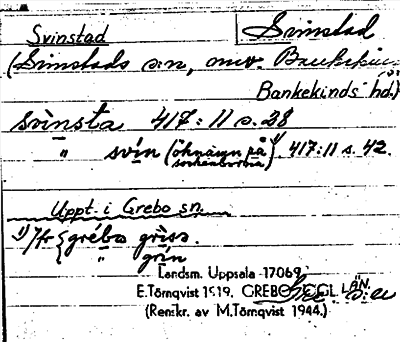 Svinstad Svinstad
(Svinstads s:n,
Bankekinds hd.)
svinsta 417:11 s. 28
" svin (öknamn på sockenborna) 1) 417:11 s. 42.
Uppt. i Grebo sn.
1) Jfr { grébo griss.
" grin
Landsm. Uppsala 17069,
E. Törnqvist 1919. GREBO ÖGL LÄN.
(Renskr. av M. Törnqvist 1944.)